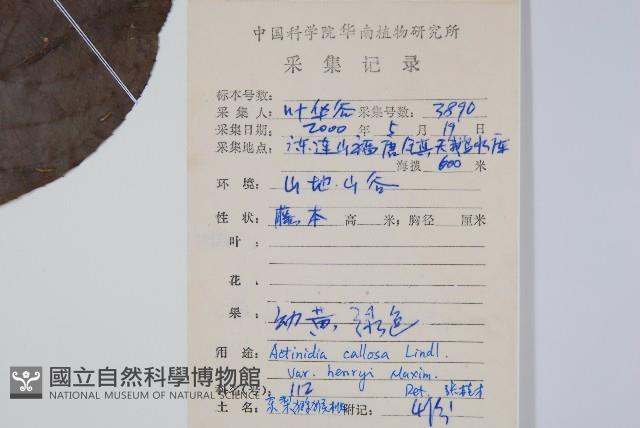 中国科学院华南植物研究所
采集记录
标本号数:
采集人: 叶华谷 采集号数: 3890
采集日期: 2000 年 5 月 19 日
采集地点: 连山福唐
海拔 600 米
环境: 山地山谷
性状: 藤本 高 米; 胸径 厘米
叶:
花.
果: 幼黄绿色
用途: Actinidia callosa Lindl.
var. henryi Maxim.
科名(号): 112 Det. 张桂才
土名: 京梨猕猴桃 附记:
國立自然科學博物館
NATIONAL MUSEUM OF NATURAL SCIENCE